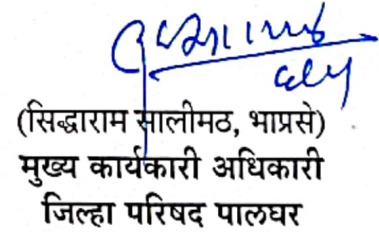 (सिद्धाराम सालीमठ, भाप्रसे)
मुख्य कार्यकारी अधिकारी
जिल्हा परिषद पालघर